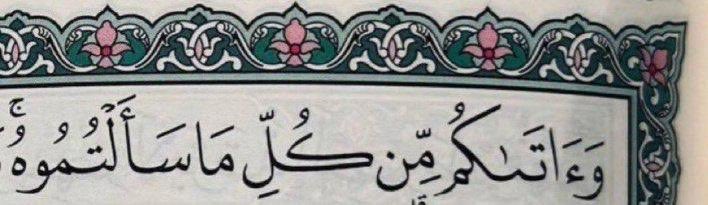 وَءَاتَىٰكُم مِّن كُلِّ مَا سَأَلْتُمُوهُۚ